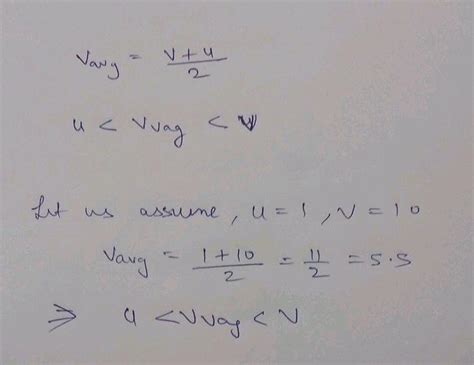 Vavg = V+u/2
u < Vvag < V
Let us assume, u=1, V=10
Vavg = 1+10/2 = 11/2 = 5.5
⇒ u < Vvag < V